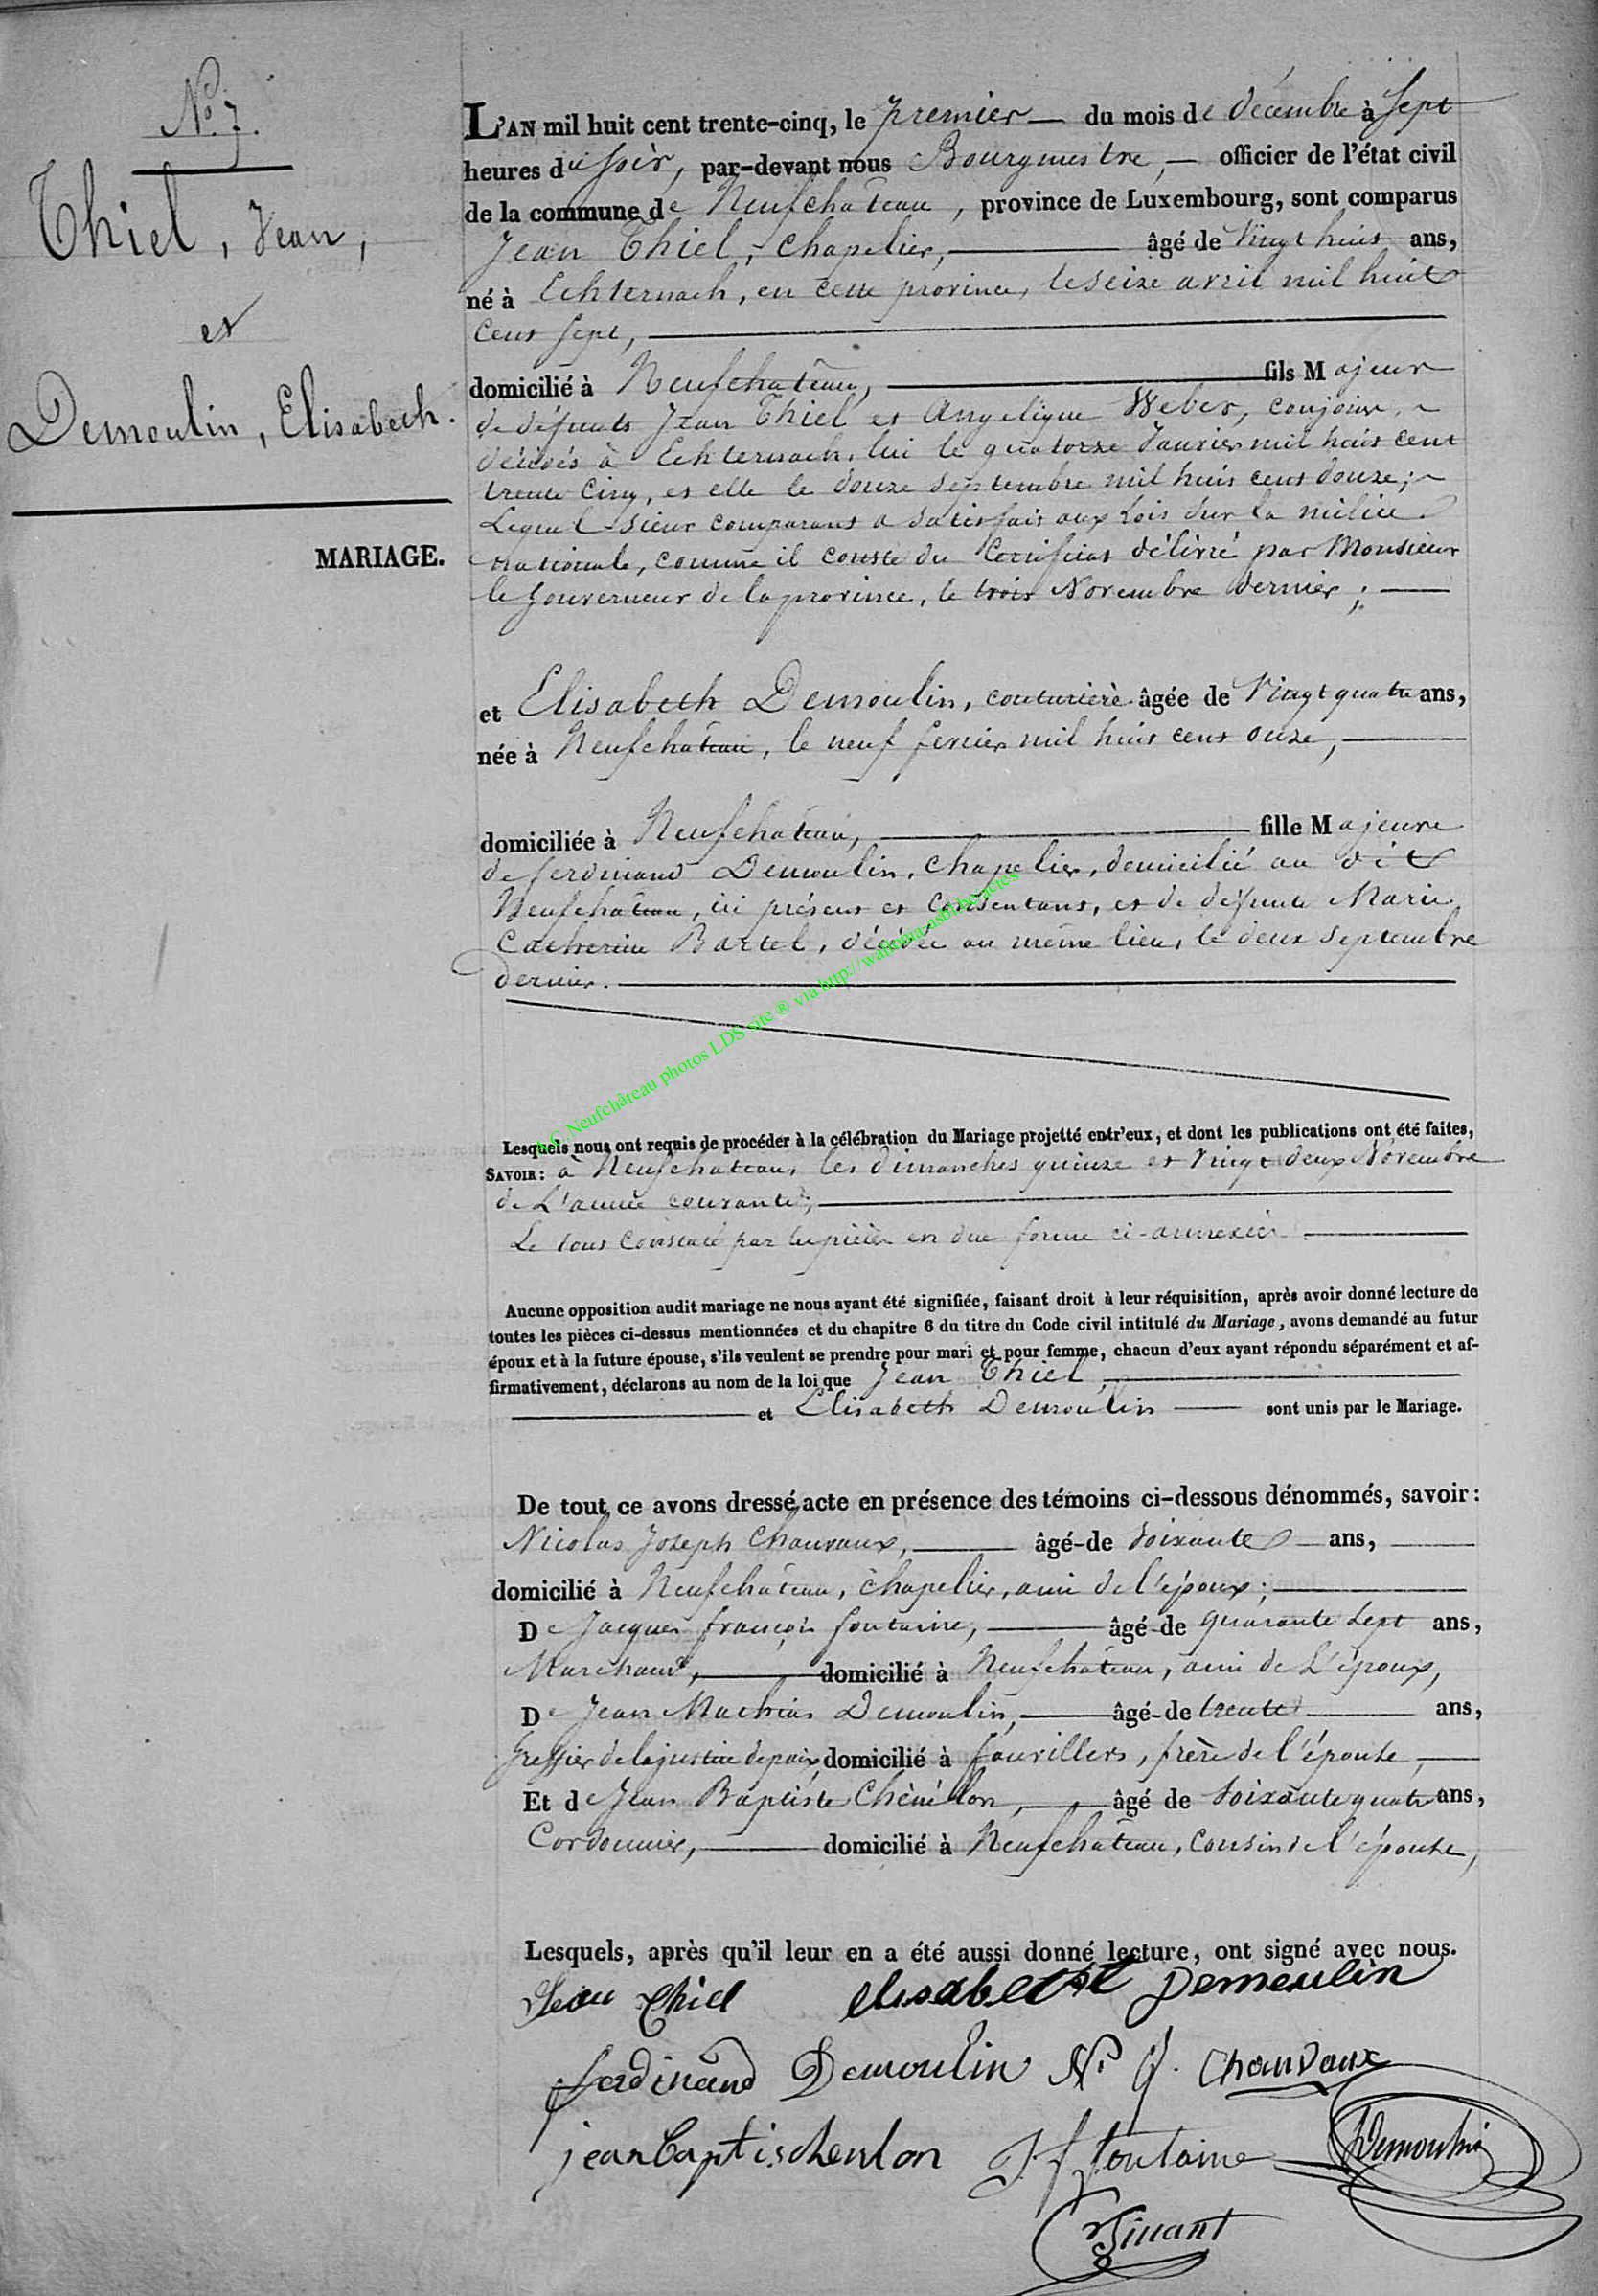 N.° 7.
Thiel, Jean,
et
Demoulin, Elisabeth.
MARIAGE.
L'AN mil huit cent trente-cinq, le premier — du mois de décembre à sept
heures du soir, par-devant nous Bourgmestre, — officier de l'état civil
de la commune de Neufchâteau, province de Luxembourg, sont comparus
Jean Thiel, chapelier, — âgé de vingt huit ans,
né à Echternach, en cette province, le seize avril mil huit
cent sept, —
domicilié à Neufchâteau, — fils Majeur
de défunts Jean Thiel et Angelique Weber, conjoints,
décédés à Echternach, lui le quatorze Janvier mil huit cent
trente cinq, et elle le douze septembre mil huit cent douze;
Lequel sieur comparant a satisfait aux Lois sur la milice
nationale, comme il conste du Certificat délivré par Monsieur
le Gouverneur de la province, le trois Novembre dernier; —
et Elisabeth Demoulin, couturière âgée de vingt quatre ans,
née à Neufchâteau, le neuf fevrier mil huit cent onze, —
domiciliée à Neufchâteau, — fille Majeure
de ferdinand Demoulin, chapelier, domicilié au dit
Neufchâteau, ici présent et consentant, et de défunte Marie
Catherine Bartel, décédée au même lieu, le deux septembre
dernier. —
Neufchâteau photos LDS site ® via http://wallonia-asbl.be/actes
Lesquels nous ont requis de procéder à la célébration du Mariage projetté entr'eux, et dont les publications ont été faites,
SAVOIR: à Neufchâteau, les dimanches quinze et vingt deux Novembre
de L'année courante; —
Le tout constaté par les pièces en due forme ci-annexées. —
Aucune opposition audit mariage ne nous ayant été signifiée, faisant droit à leur réquisition, après avoir donné lecture de
toutes les pièces ci-dessus mentionnées et du chapitre 6 du titre du Code civil intitulé du Mariage, avons demandé au futur
époux et à la future épouse, s'ils veulent se prendre pour mari et pour femme, chacun d'eux ayant répondu séparément et af-
firmativement, déclarons au nom de la loi que Jean Thiel, —
— et Elisabeth Demoulin — sont unis par le Mariage.
De tout ce avons dressé acte en présence des témoins ci-dessous dénommés, savoir:
Nicolas Joseph Chauvaux, — âgé-de soixante — ans, —
domicilié à Neufchâteau, chapelier, ami de l'époux; —
De Jacques françois fontaine, — âgé-de quarante sept ans,
Marchand, — domicilié à Neufchâteau, ami de L'époux,
De Jean Mathias Demoulin, — âgé-de trente — ans,
Greffier de la justice de paix, domicilié à fauvillers, frère de l'épouse, —
Et de Jean Baptiste Chènélon, — âgé de soixante quatre ans,
Cordonnier, — domicilié à Neufchâteau, cousin de l'épouse,
Lesquels, après qu'il leur en a été aussi donné lecture, ont signé avec nous.
Jean Thiel elisabetht Demeulin
ferdinand Demoulin Ns J. Chauvaux
jean baptischenlon J. f fontaine Demoulin